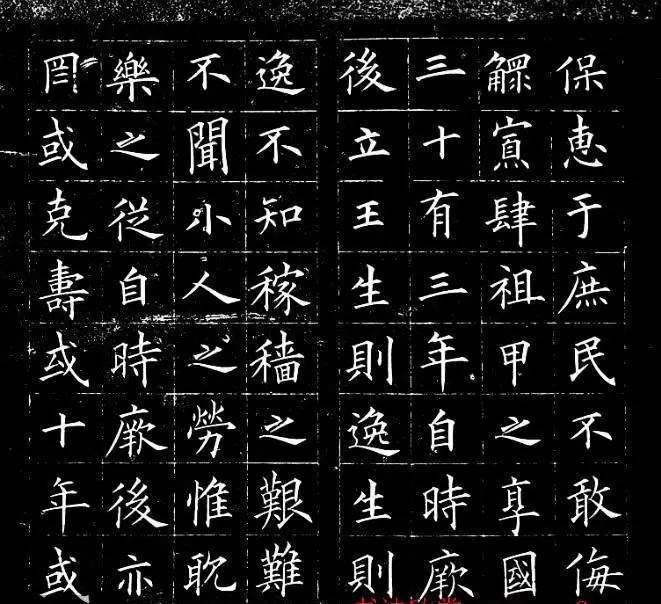 保惠于庶民不敢侮
鰥寡肆祖甲之享國
三十有三年自時厥
後立王生則逸生則
逸不知稼穡之艱難
不聞小人之勞惟耽
樂之從自時厥後亦
罔或克壽或十年或